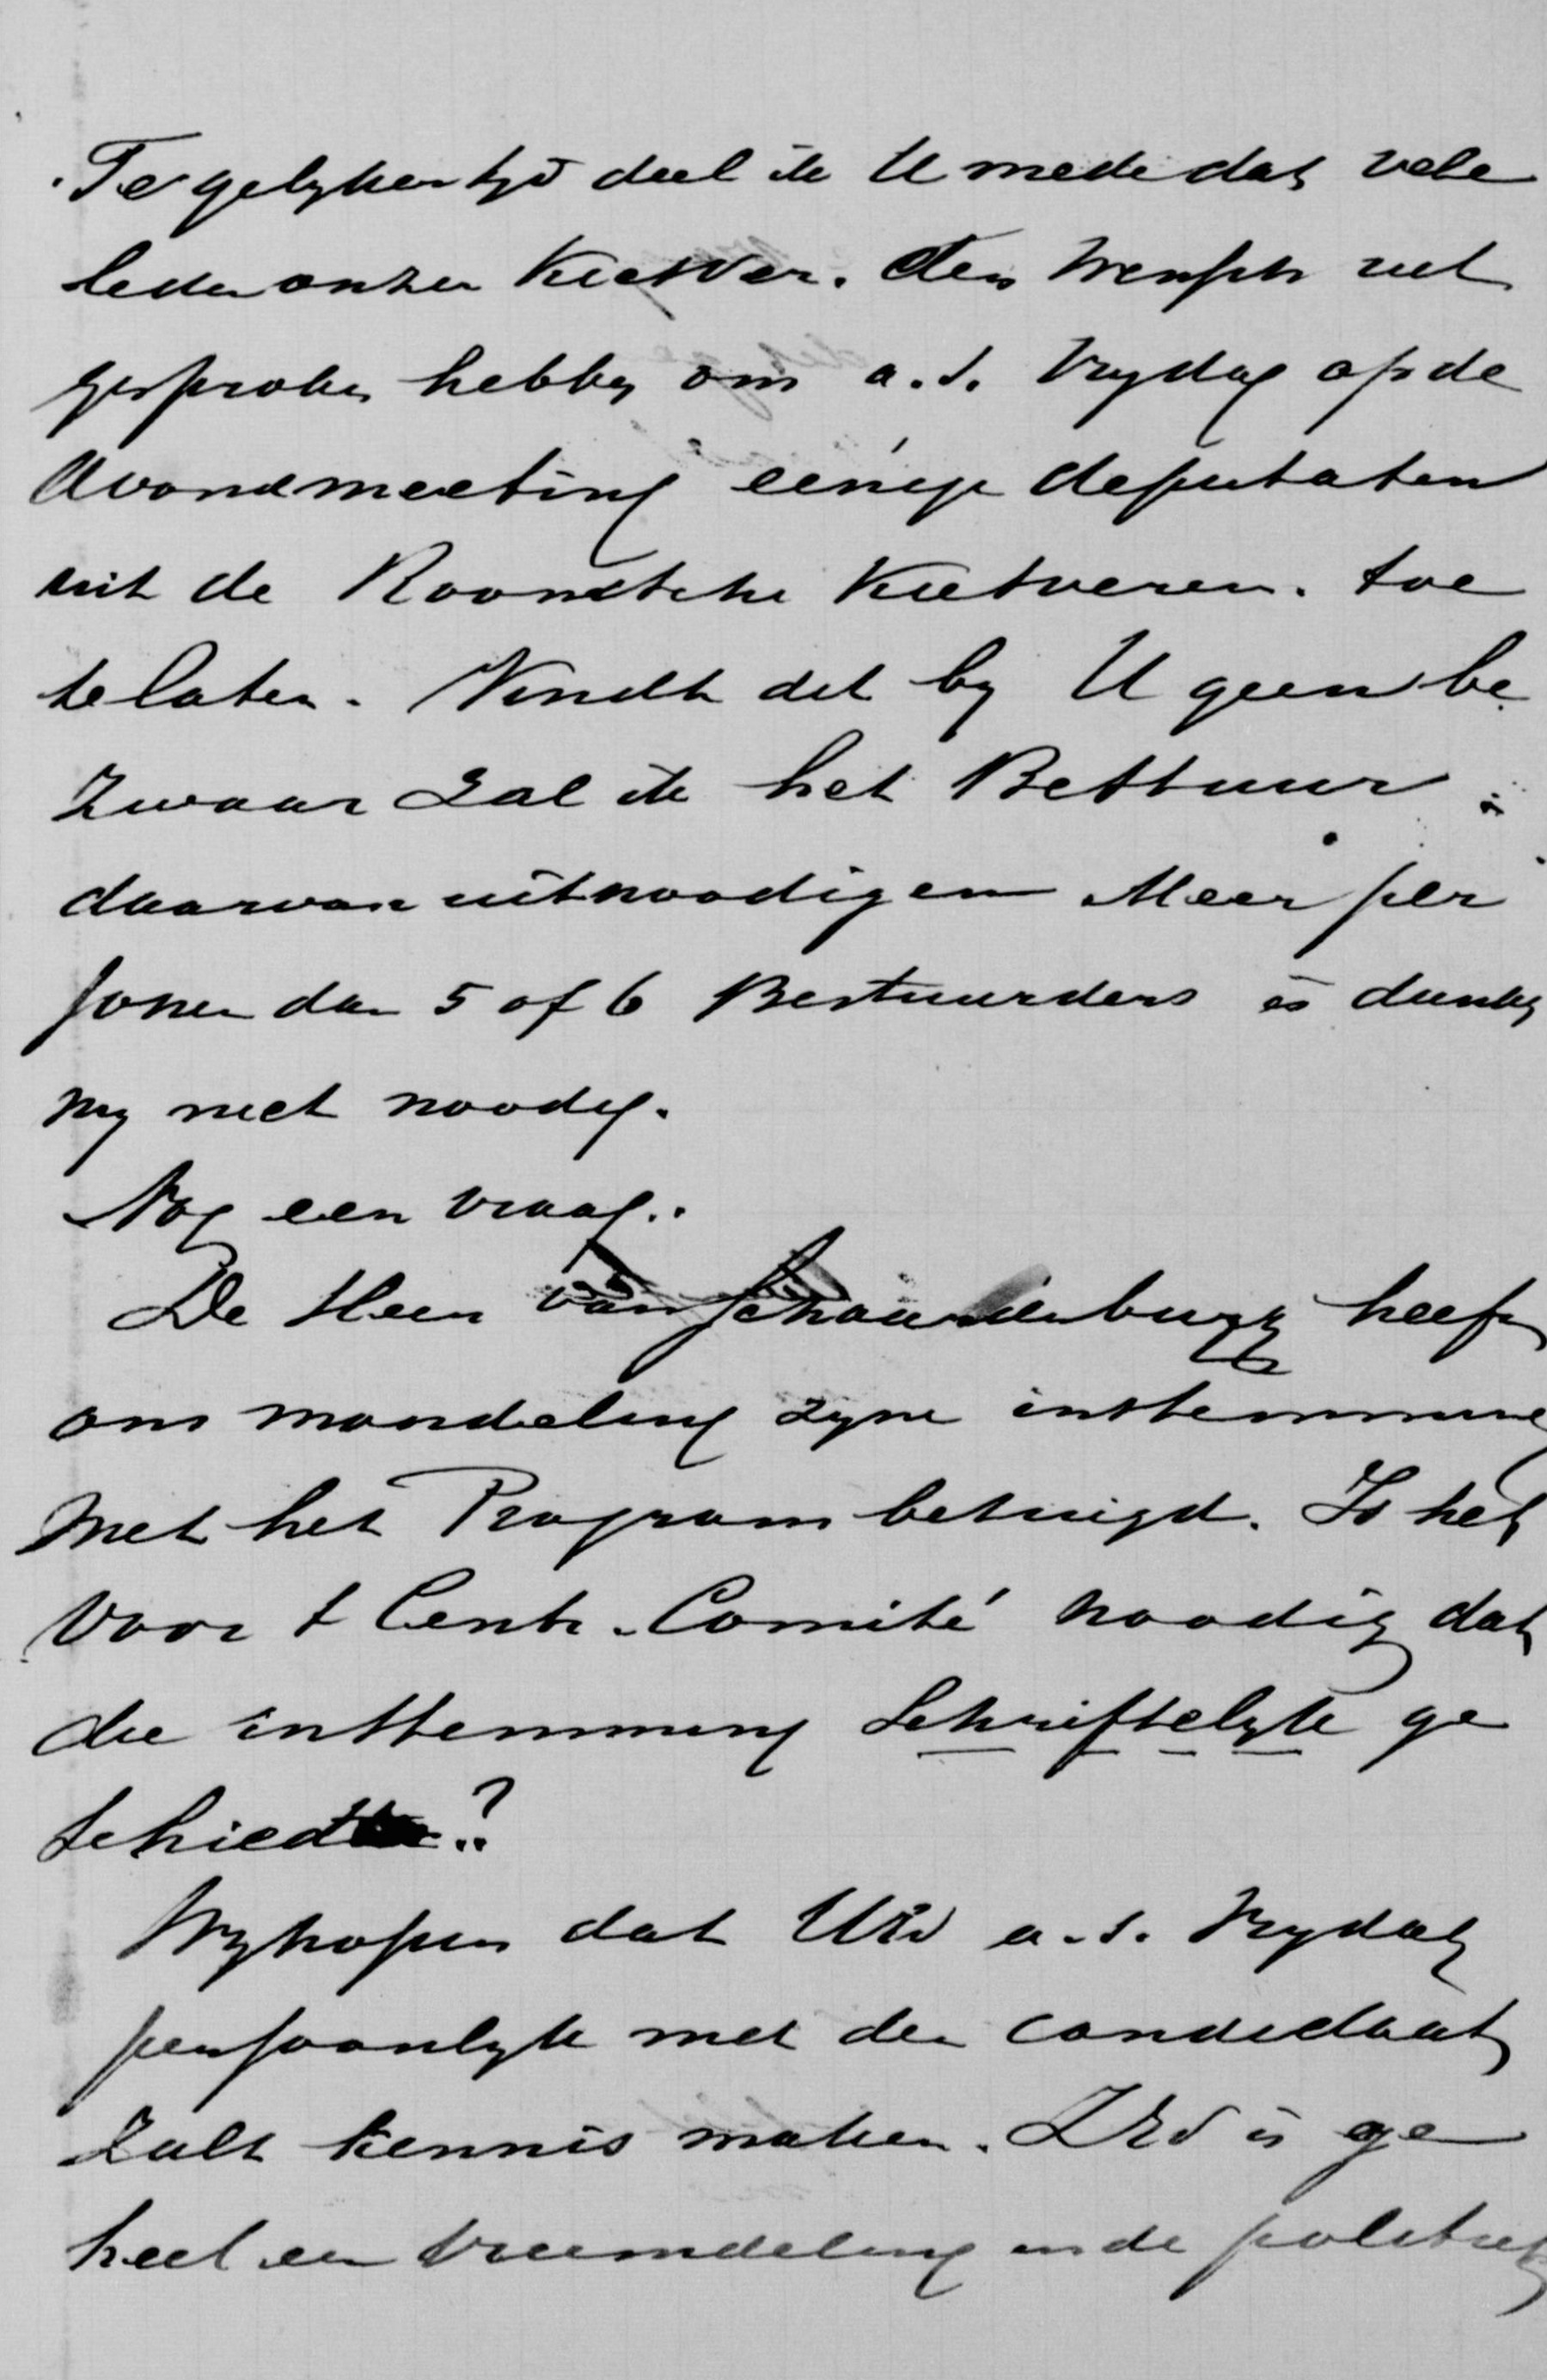 Te gelykertyd deel ik U mede dat vele
leden onzer KiesVer. den wensch uit
gesproken hebben om a.s. Vrydag op de
Avondmeeting eenige deputaten
uit de Roomsche Kiesveren. toe
te laten. Vindt dit by U geen be
zwaar zal ik het Bestuur
daarvan uitnoodigen Meer per
sonen dan 5 of 6 Bestuurders is dunkt
my niet noodig.
Nog een vraag..
De Heer van Schaardenburg heeft
ons mondeling zyne instemming
met het Program betuigd. Is het
voor t Centr. Comité noodig dat
die instemming schriftelyk ge
schiedt?
Wy hopen dat UEd a.s. Vrydag
persoonlyk met den candidaat
zult kennis maken. ZEd is ge
heel een vreemdeling in de politiek